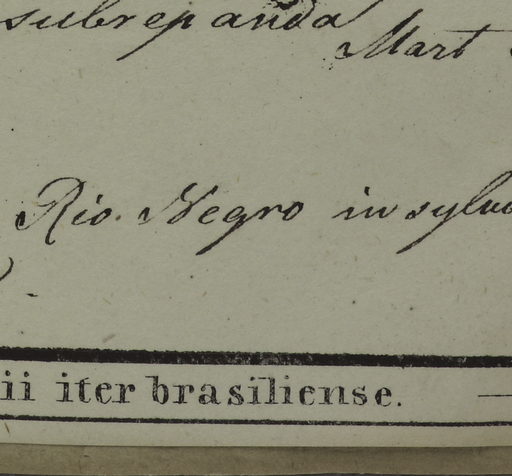 subrepanda
Mart
Rio Negro in sylv
ii iter brasiliense. —